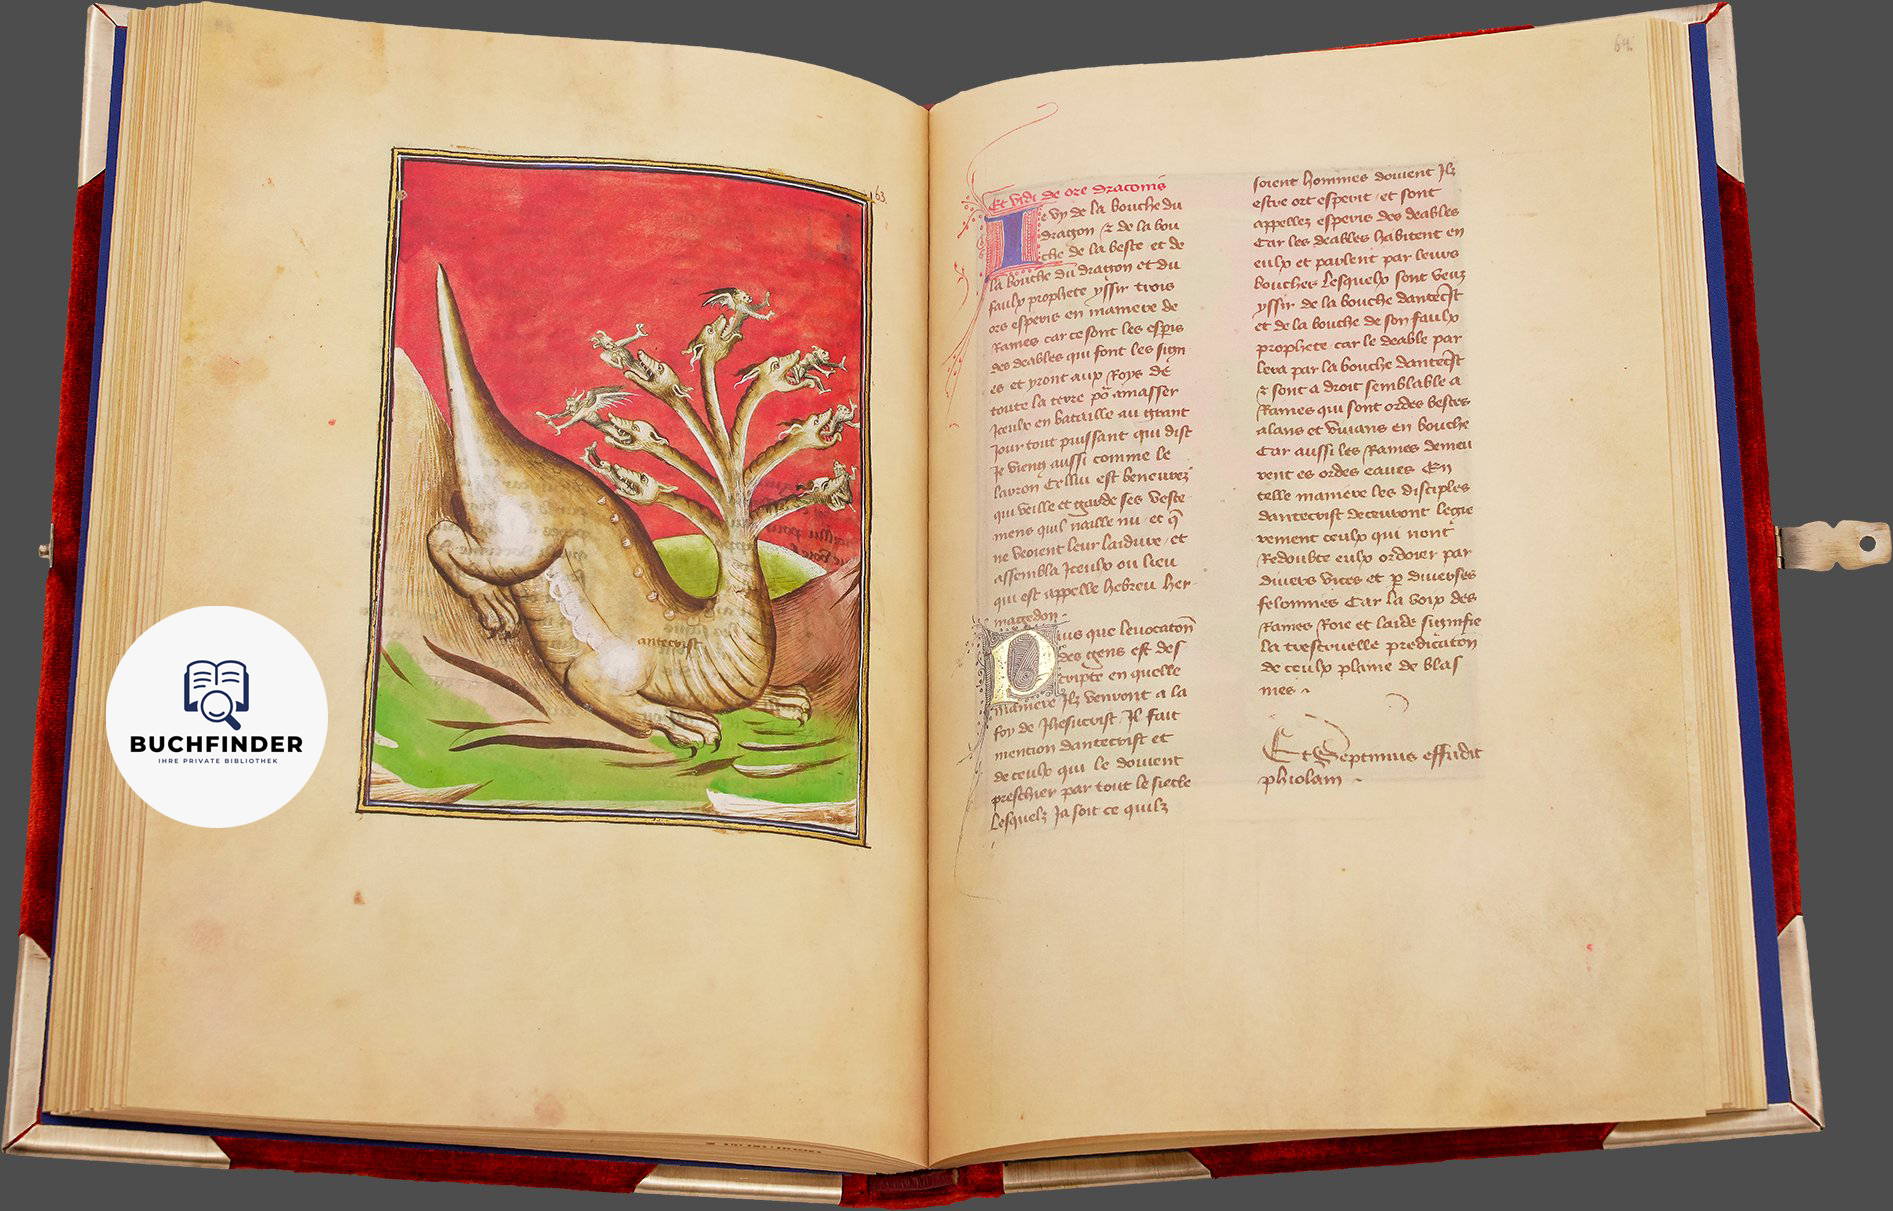 63
antecrist
BUCHFINDER
IHRE PRIVATE BIBLIOTHEK
64
Et vidi de ore draconis
Je vy de la bouche du
dragon & de la bou
che de la beste et de
la bouche du dragon et du
faulx prophete yssir trois
ors esperis en maniere de
Raines car ce sont les esp̄is
des deables qui font les sign
es et yront aux Roys de
toute la terre po᷑ amasser
Iceulx en bataille au grant
Jour tout puissant qui dist
Je vieng aussi comme le
larron Cellui est beneurez
qui veille et garde ses veste
mens quil naille nu et q̄
ne voient leur laidure et
assembla Iceulx ou lieu
qui est appelle hebreu her
magedon
Puis que levocaton̄
des gens est des
cripte en quelle
maniere Ilz venront a la
foy de Jhesucrist Il fait
mention dantecrist et
de ceulx qui le doivent
preschier par tout le siecle
Lesquelz Ja soit ce quilz
soient hommes doivent Ilz
estre ort esperit et sont
appellez esperis des deables
Car les deables habitent en
eulx et parlent par leurs
bouches Lesquelx sont veuz
yssir de la bouche dantec̄st
et de la bouche de son faulx
prophete car le deable par
lera par la bouche dantec̄st
& sont a droit semblable a
Raines qui sont ordes bestes
alans et vivans en bouche
Car aussi les Raines demeu
rent es ordes eaues En
telle maniere les disciples
dantecrist decevront legie
rement ceulx qui nont
Redoubte eulx ordoier par
divers vices et p̄ diverses
felonnies Car la voix des
Raines Roie et laide signifie
la tresruelle predicaton̄
de ceulx plaine de blas
mes
Et Septimus effudit
phiolam